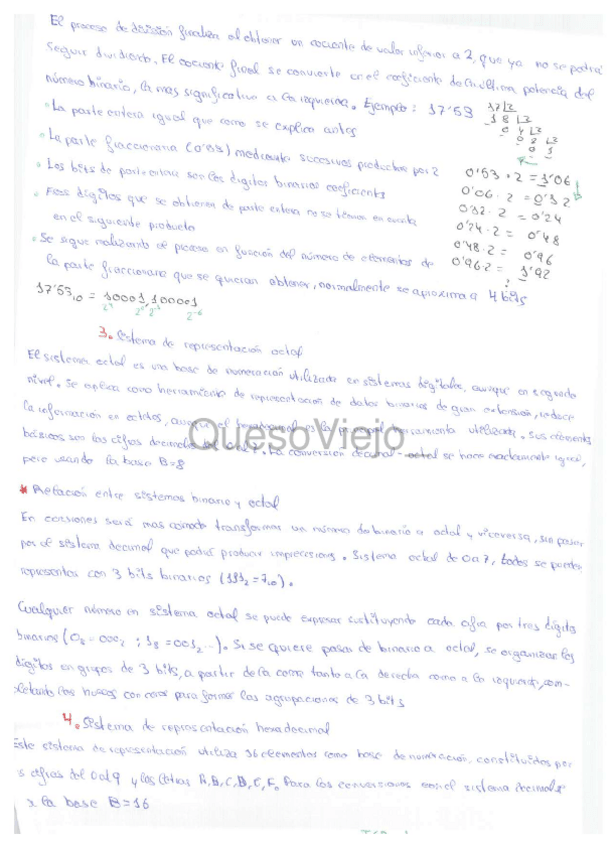 El proceso de división finaliza al obtener un cociente de valor inferior a 2, que ya no se podrá
seguir dividiendo. El cociente final se convierte en el coeficiente de la última potencia del
número binario, la mas significativa a la izquierda. Ejemplo: 17'53 17 |2
· La parte entera igual que como se explica antes
· La parte fraccionaria (0'53) mediante sucesivos productos por 2 0'53 · 2 = 1'06
· Los bits de parte entera son los dígitos binarios coeficients 0'06 · 2 = 0'12
· Esos dígitos que se obtienen de parte entera no se tienen en cuenta 0'12 · 2 = 0'24
en el siguiente producto 0'24 · 2 = 0'48
0'48 · 2 = 0'96
· Se sigue realizando el proceso en función del número de elementos de 0'96 · 2 = 1'92
la parte fraccionaria que se quieran obtener, normalmente se aproxima a 4 bits
17'53₁₀ = 10001,100001
3. Sistema de representación octal
El sistema octal es una base de numeración utilizada en sistemas digitales, aunque en segundo
nivel. Se aplica como herramienta de representación de datos binarios de gran extensión, reduce
la información en octetos, aunque el hexadecimal es la principal herramienta utilizada. Sus elementos
básicos son las cifras decimales del 0 al 7. La conversión decimal-octal se hace exactamente igual,
pero usando la base B=8
QuesoViejo
* Relación entre sistemas binario y octal
En ocasiones será mas comodo transformar un número de binario a octal y viceversa, sin pasar
por el sistema decimal que podría producir imprecisions. Sistema octal de 0 a 7, todos se pueden
representar con 3 bits binarios (111₂ = 7₁₀).
Cualquier número en sistema octal se puede expresar sustituyendo cada cifra por tres dígitos
binarios (0₈ = 000₂ ; 1₈ = 001₂ ...). Si se quiere pasar de binario a octal, se organizan los
dígitos en grupos de 3 bits, a partir de la coma tanto a la derecha como a la izquierda, com-
pletando los huecos con ceros para formar las agrupaciones de 3 bits
4. Sistema de represcotación hexadecimal
Este sistema de representación utiliza 16 elementos como base de numeración, constituidos por
cifras del 0 al 9 y las letras A, B, C, D, E, F. Para las conversiones con el sistema decimal
la base B=16